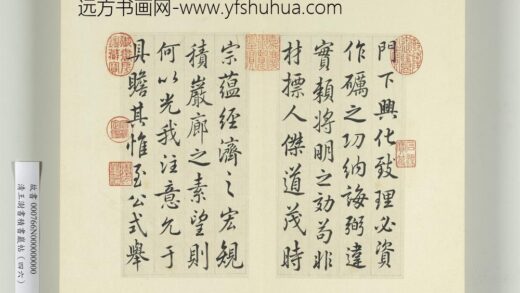 远方书画网-www.yfshuhua.com
門下興化致理必資
作礪之功納誨弼違
實賴將明之効苟非
材摽人傑道茂時
宗蘊經濟之宏規
積巖廊之素望則
何以光我注意允于
具瞻其惟至公式舉
故書 000766N000000000
清王澍書積書巖帖(四六)